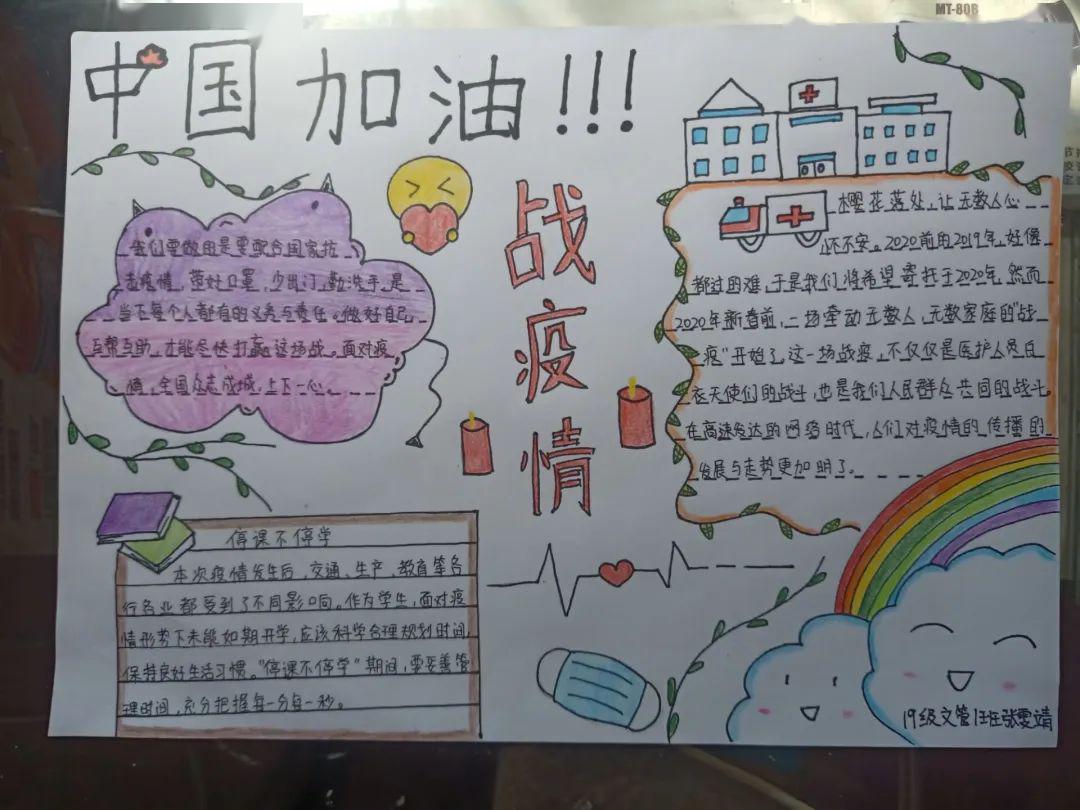 MT-80B
中国加油!!!
战疫情
我们要做的是要配合国家抗
击疫情，带好口罩，少出门，勤洗手，是
当下每个人都有的义务与责任。做好自己，
互帮互助，才能尽快打赢这场战。面对疫
情，全国众志成城，上下一心。
樱花落处，让无数人心
怀不安。2020前的2019年，好像
都过的难，于是我们将希望寄托于2020年，然而
2020年新春前，一场牵动无数人，无数家庭的"战
疫"开始了，这一场战疫，不仅仅是医护人员白
衣天使们的战斗，也是我们人民群众共同的战斗。
在高速发达的网络时代，人们对疫情的传播的
发展与走势更加明了。
停课不停学
本次疫情发生后，交通、生产、教育等各
行各业都受到了不同影响。作为学生，面对疫
情形势下未能如期开学，应该科学合理规划时间，
保持良好生活习惯。"停课不停学"期间，要妥善管
理时间，充分把握每一分每一秒。
19级文管1班张雯靖